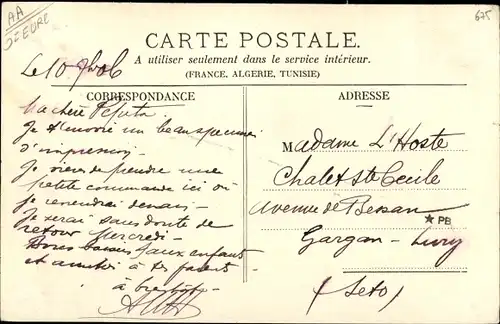 AA
675
CARTE POSTALE.
A utiliser seulement dans le service intérieur.
(FRANCE, ALGERIE, TUNISIE)
CORRESPONDANCE
ADRESSE
Le 10
Ma chère
Je t'envoie un beau specimen
d'impression.
Je viens de prendre une
petite commande ici où
je reviendrai demain
Je serai sans doute de
retour Mercredi
Bons baisers aux enfants
et amitiés à tes parents
à bientôt
Madame L'Hoste
Chalet Ste Cecile
Avenue de
*PB
Gargan - Livry